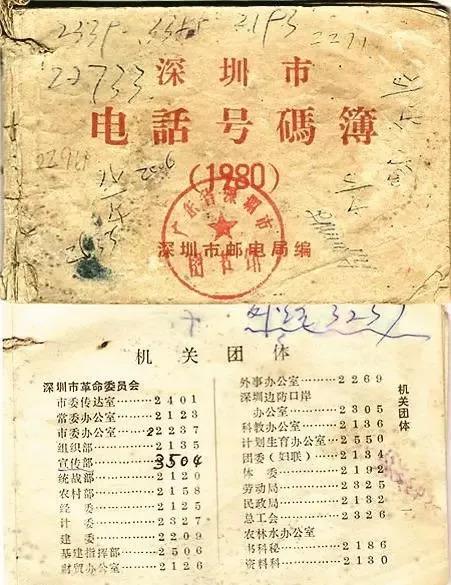 2339 3368 2193
2271
22733
深圳市
电話号碼簿
(1980)
广东省深圳市
深圳市邮电局编
3237
机关团体
深圳市革命委员会
市委传达室……2401
常委办公室……2123
市委办公室……22237
组织部……2135
宣传部……3504
统战部……2120
农村部……2158
经委……2125
计委……2327
建委……2209
基建指挥部……2506
财贸办公室……2126
外事办公室……2269
深圳边防口岸
办公室……2305
科教办公室……2136
计划生育办公室……2550
团委(妇联)……2134
体委……2192
劳动局……2325
民政局……2132
总工会……2326
农林水办公室
书科秘……2186
资料科……2130
机关团体
一